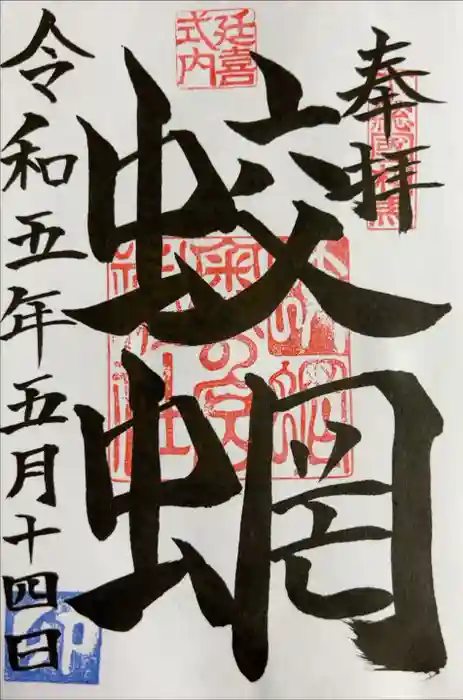 奉拝
延喜
式内
蛟蝄
奥の宮
令和五年五月十四日